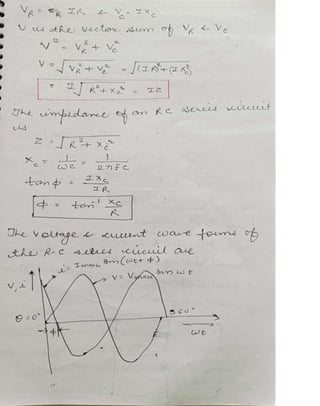 V_R = IR & V_C = I X_C
V is the vector sum of V_R & V_C
V² = V_R² + V_C²
V = √(V_R² + V_C²) = √((IR)² + (I X_C)²)
= I √(R² + X_C²) = IZ
The impedance of an RC series circuit
is
Z = √(R² + X_C²)
X_C = 1/ωC = 1/2πfC
tan φ = I X_C / I R
φ = tan⁻¹ X_C / R
The voltage & current wave forms of
the R-C series circuit are
i = I max sin(ωt + φ)
V, i
V = V max sin ωt
θ = 0°
360°
φ
ωt